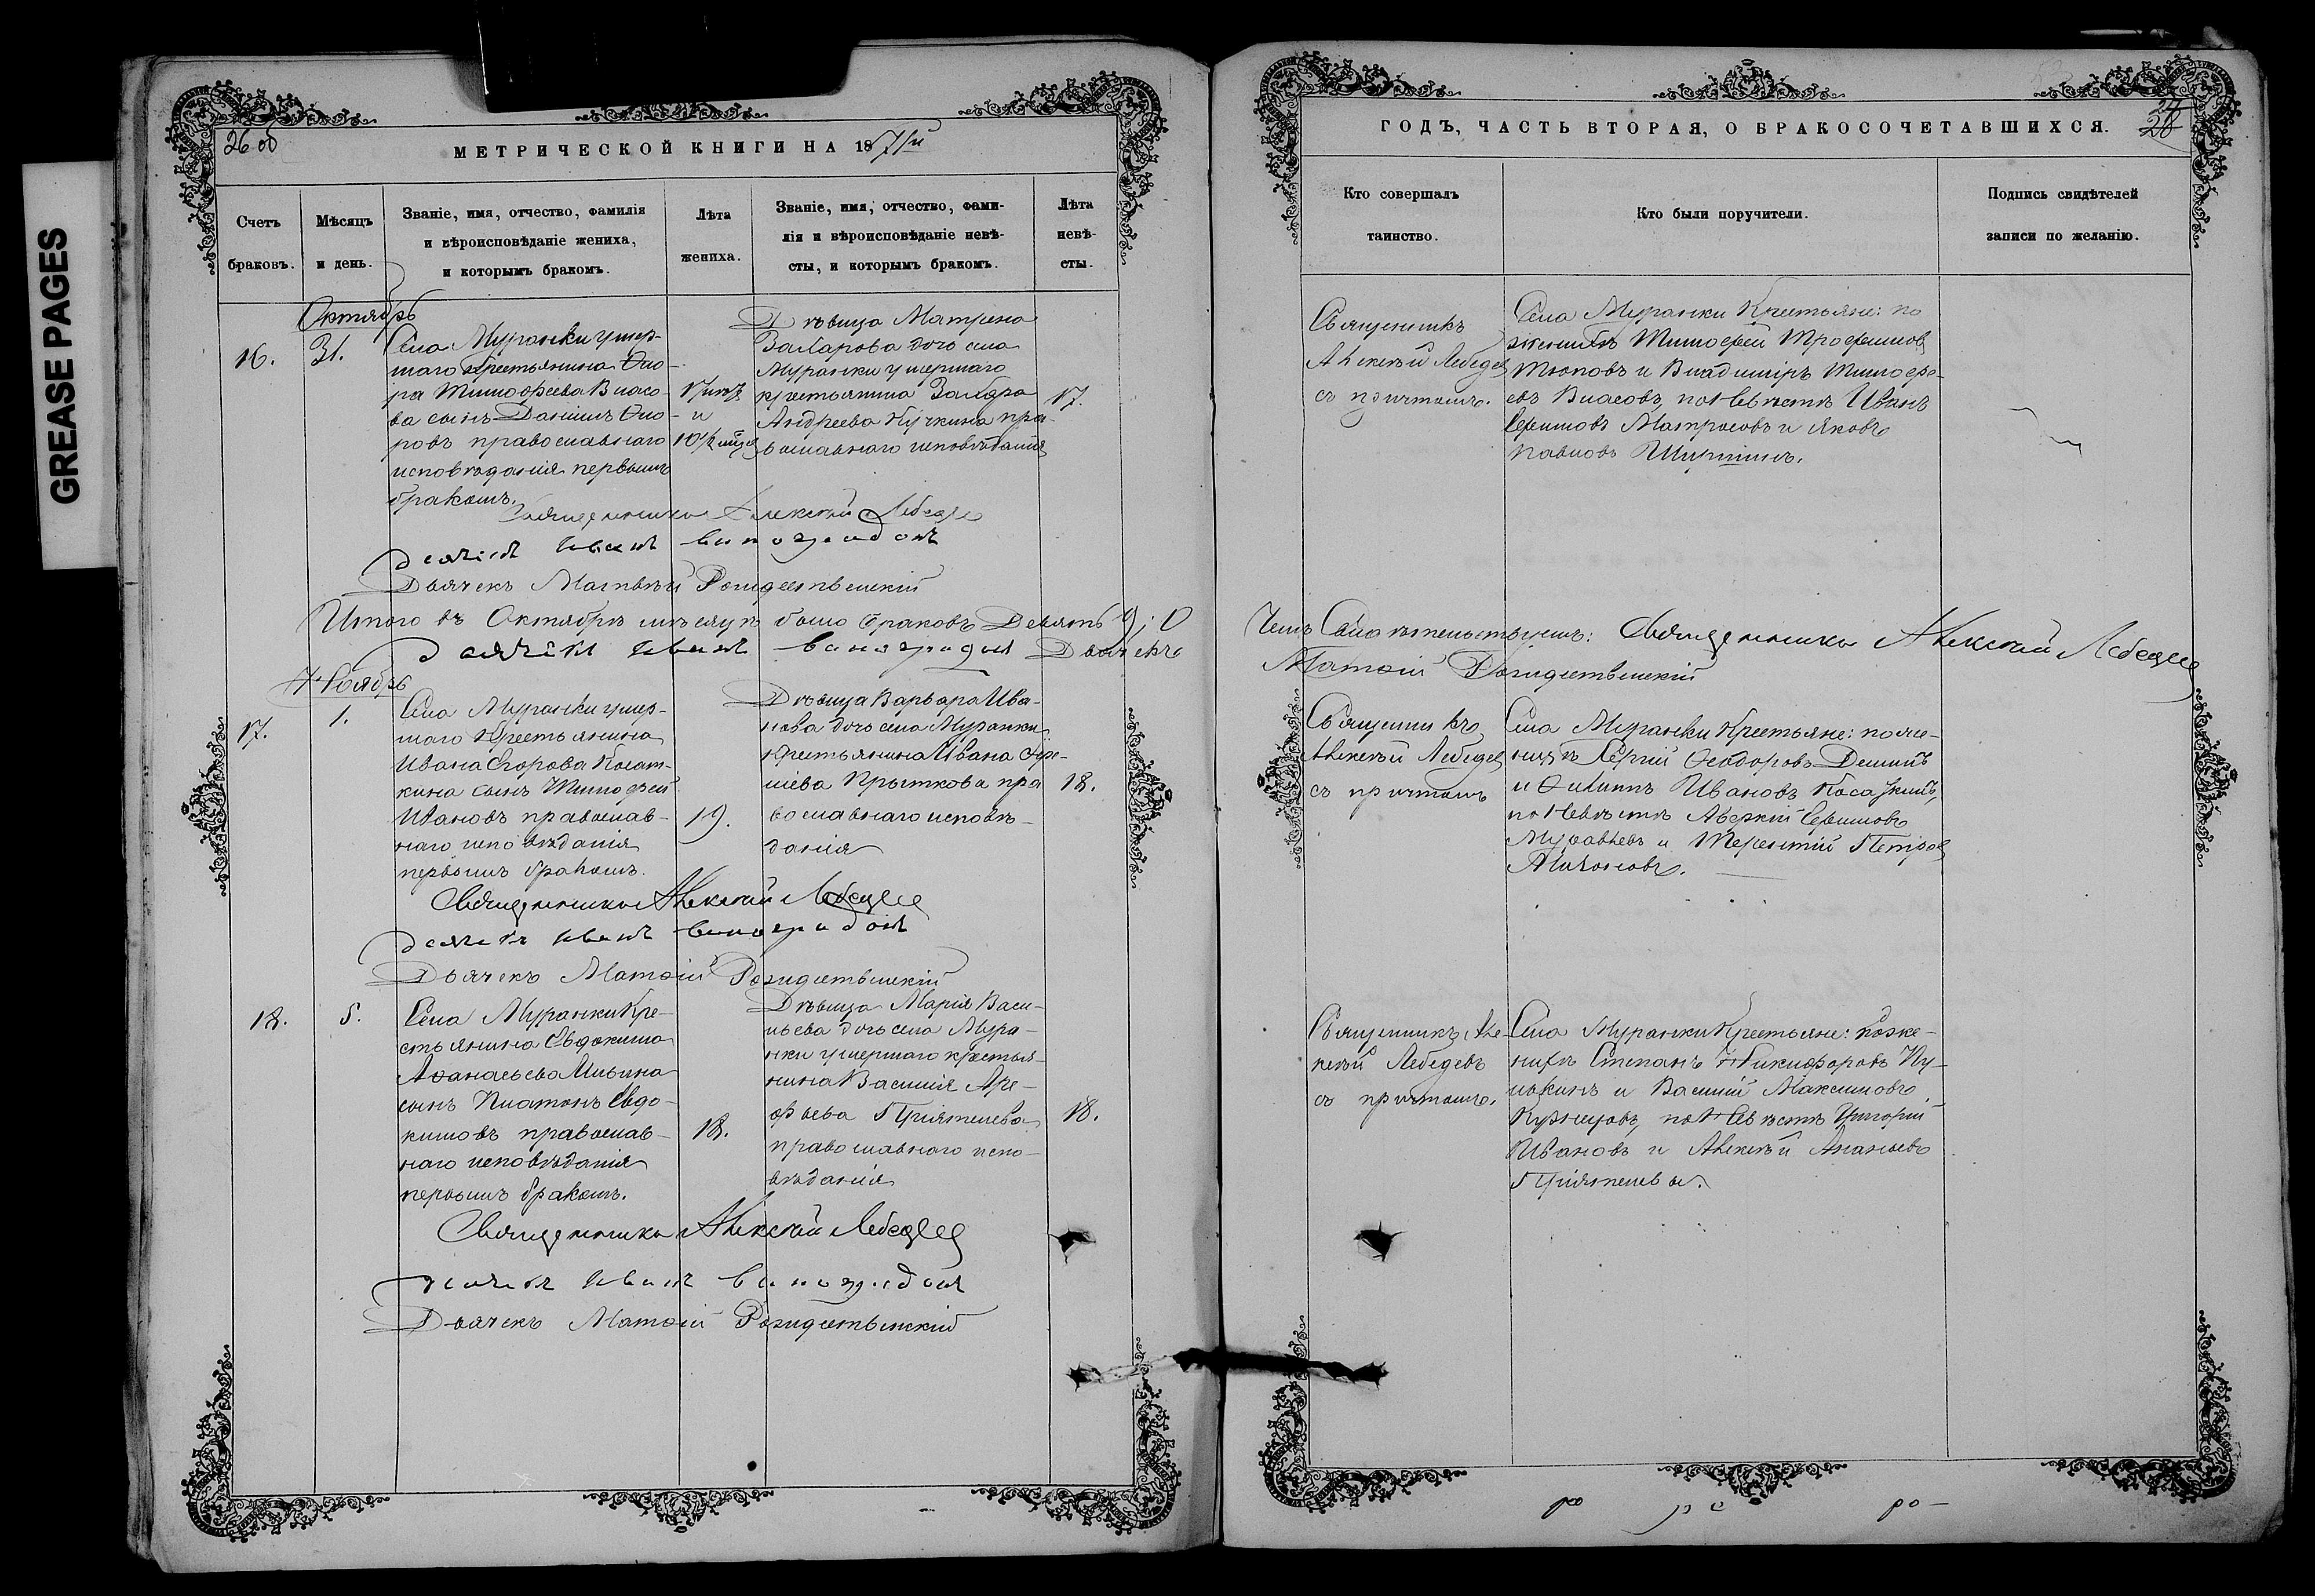 GREASE PAGES
26 об
МЕТРИЧЕСКОЙ КНИГИ НА 1871й
Счетъ
браковъ.
Мѣсяцъ
и день.
Званіе, имя, отчество, фамилія
и вѣроисповѣданіе жениха,
и которымъ бракомъ.
Лѣта
жениха.
Званіе, имя, отчество, фами-
лія и вѣроисповѣданіе невѣ-
сты, и которымъ бракомъ.
Лѣта
невѣ-
сты.
Октябрь
16.
31.
Села Муранки умер-
шаго крестьянина
Тимофеева Власо-
ва сынъ Даніилъ
ровъ православнаго
исповѣданія первымъ
бракомъ.
17
и
10
Дѣвица Матрена
Захарова дочь села
Муранки умершаго
крестьянина Захара
Андреева Кучкина пра-
вославнаго исповѣданія
17.
Священникъ Алексѣй Лебедев
Дьячекъ Иванъ Виноградовъ
Дьячекъ Матвѣй Рождественскій
Итого въ Октябрѣ мѣсяцѣ было браковъ Девять 9;
Дьячекъ Иванъ Виноградовъ Дьячекъ
Ноябрь
17.
1.
Села Муранки умер-
шаго крестьянина
Ивана Егорова Косат-
кина сынъ Тимофей
Ивановъ православ-
наго исповѣданія
первымъ бракомъ.
19.
Дѣвица Варвара Ива-
нова дочь села Муранки
крестьянина Ивана
Прыткова пра
вославнаго исповѣ-
данія
18.
Священникъ Алексѣй Лебедев
Дьячекъ Иванъ Виноградовъ
Дьячекъ Матѳій Рождественскій
18.
5.
Села Муранки Кре-
стьянина Евдокима
Аѳанасьева Ильина
сынъ Платонъ Евдо-
кимовъ православ-
наго исповѣданія
первымъ бракомъ.
18.
Дѣвица Марія Васи-
льева дочь села Мура-
нки умершаго крестья-
нина Василія Аре-
фьева Пріятелева
православнаго испо-
вѣданія
18.
Священникъ Алексѣй Лебедев
Дьячекъ Иванъ Виноградовъ
Дьячекъ Матѳій Рождественскій
ГОДЪ, ЧАСТЬ ВТОРАЯ, О БРАКОСОЧЕТАВШИХСЯ.
27
28
Кто совершалъ
таинство.
Кто были поручители.
Подпись свидѣтелей
записи по желанію.
Священникъ
Алексѣй Лебедев
съ причтомъ.
Села Муранки Крестьяне: по
женихѣ Тимофей Трофимовъ
Тюповъ и Владиміръ Тимофе-
евъ Власовъ, по Невѣстѣ Иванъ
Ефимовъ Матросовъ и Яковъ
Павловъ
Чемъ Свидѣтельствуемъ: Священникъ Алексѣй Лебедев
Матѳій Рождественскій
Священникъ
Алексѣй Лебедев
съ причтомъ
Села Муранки Крестьяне: по же-
нихѣ Сергій Ѳеодоровъ Деминъ
и Филиппъ Ивановъ
по Невѣстѣ Аверкій Ефимовъ
Муравьевъ и Терентій Петров
Священникъ Але-
ксѣй Лебедевъ
съ причтомъ.
Села Муранки Крестьяне: по же-
нихѣ Степанъ Никифоровъ
и Василій Максимовъ
Кузнецовъ, по Невѣстѣ Григорій
Ивановъ и Алексѣй Ананьевъ
Пріятелевы.